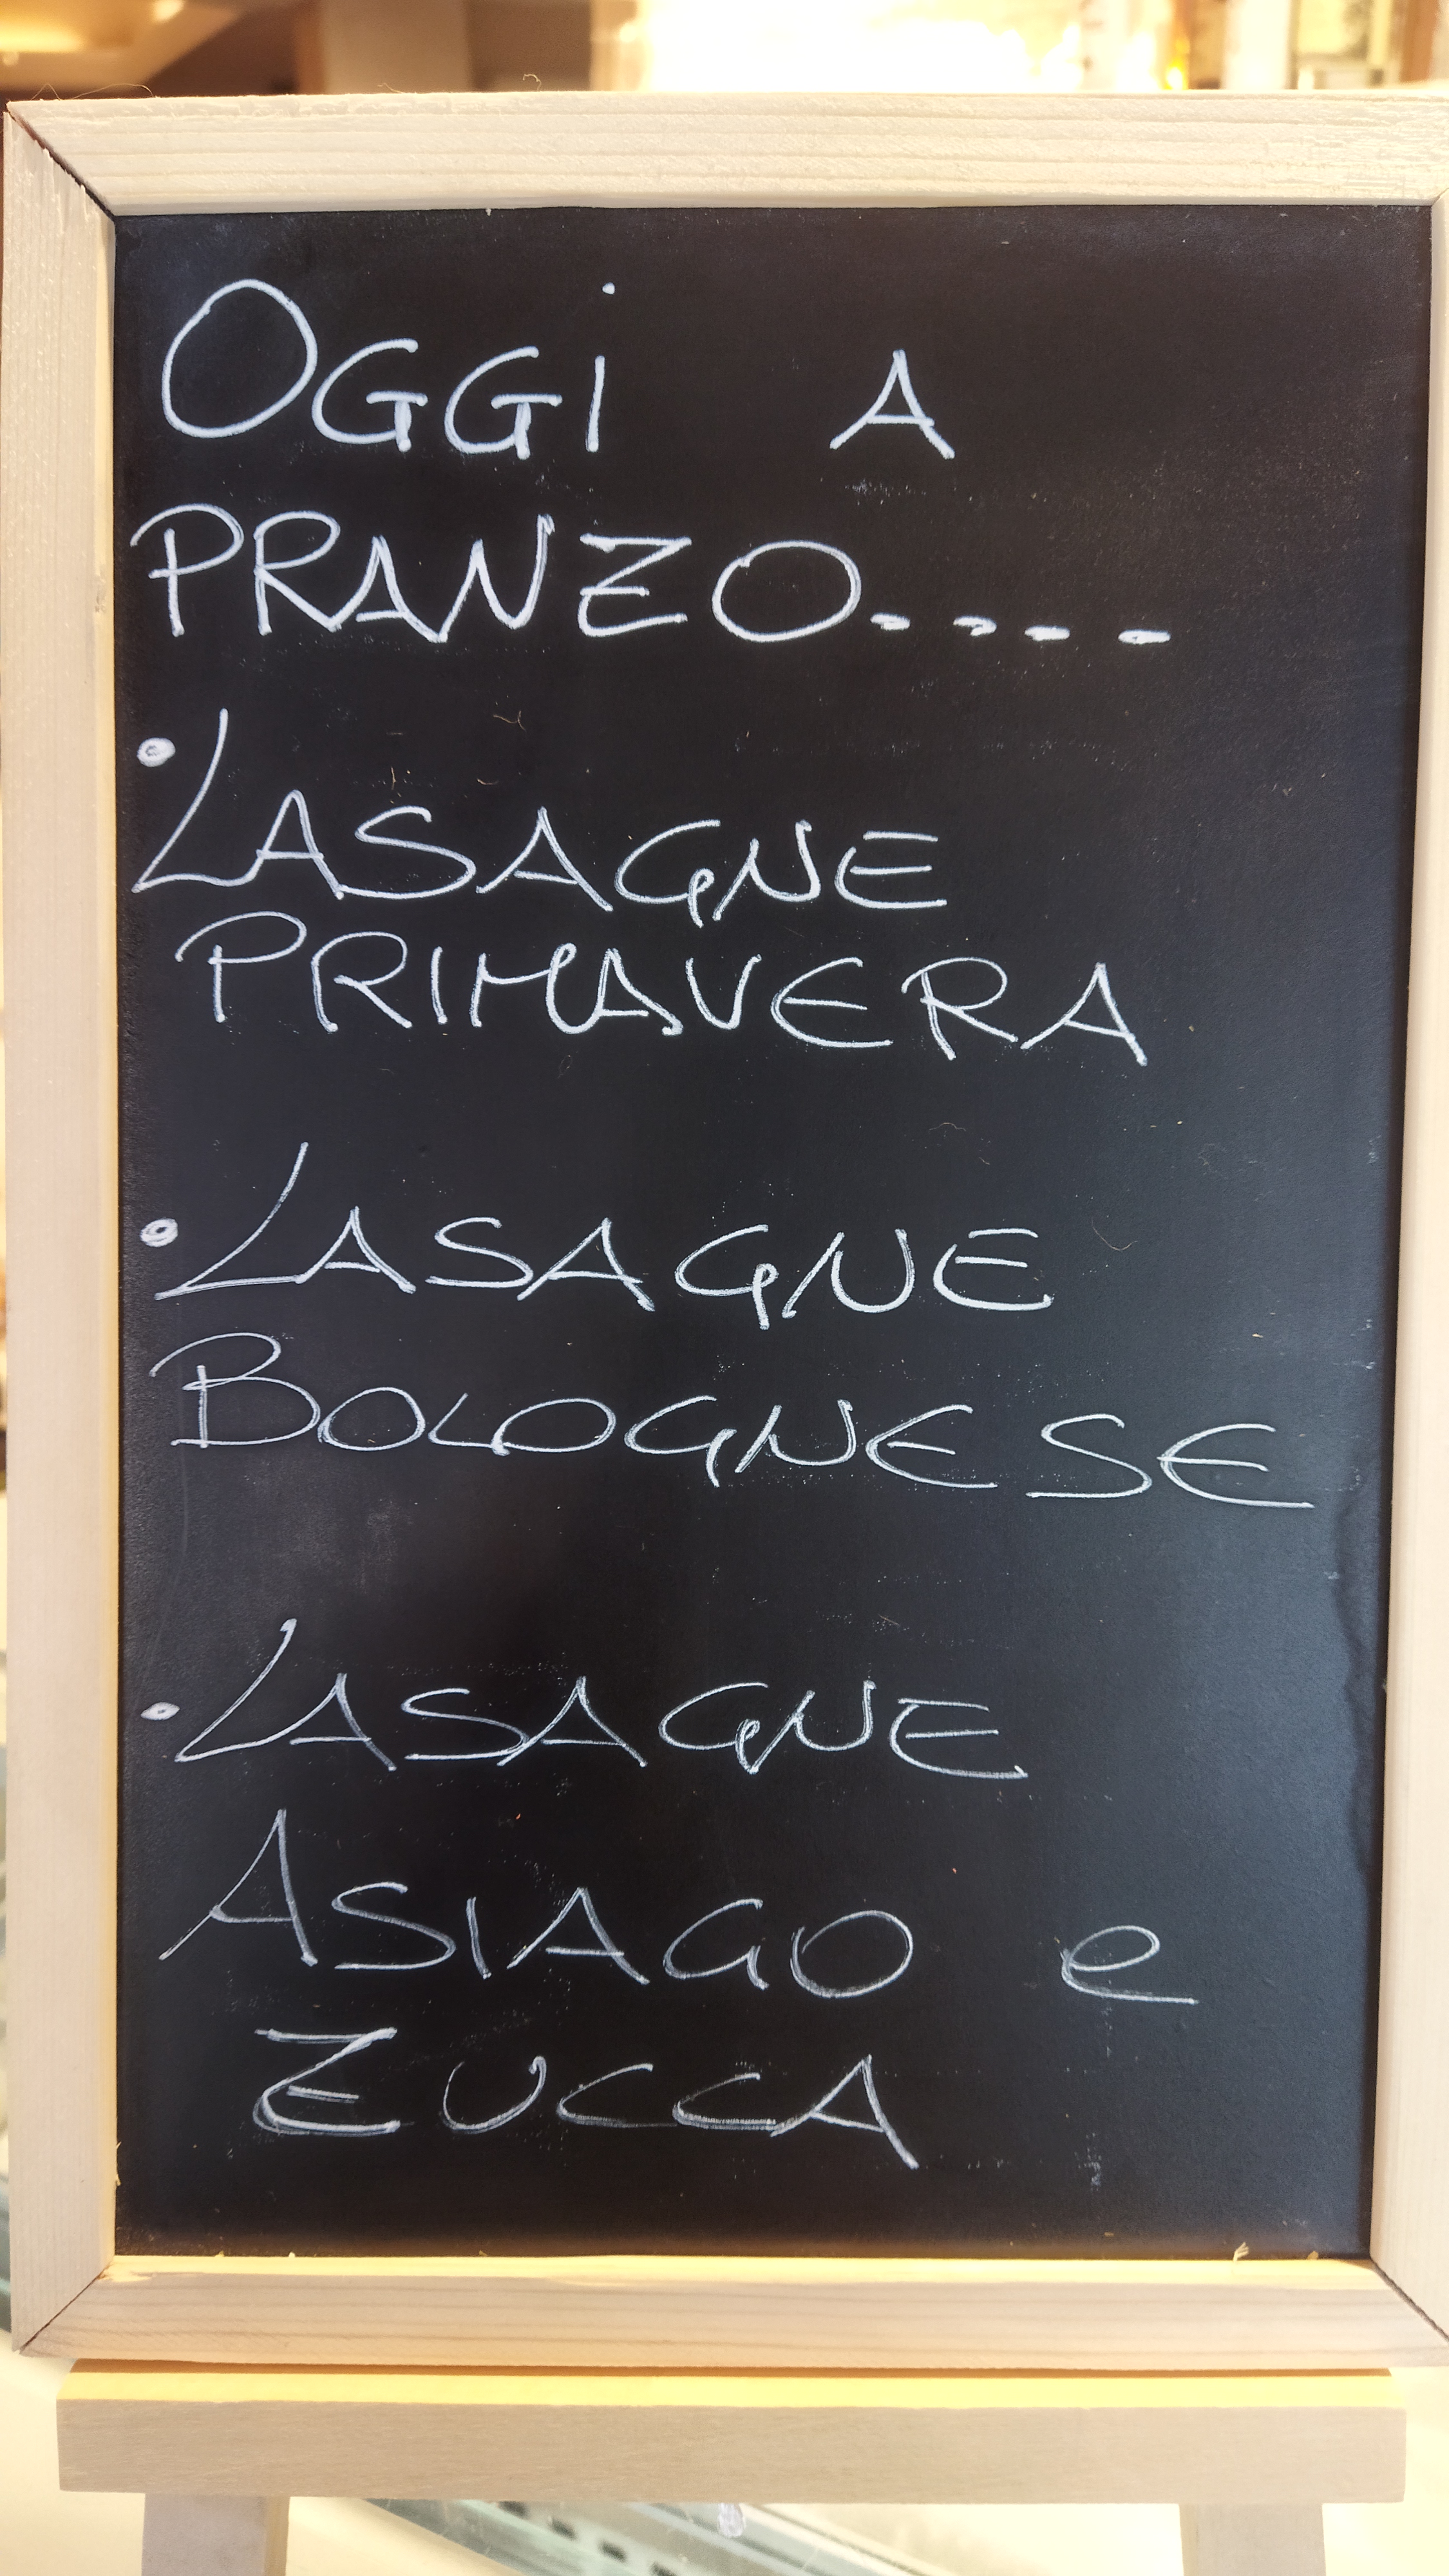 OGGi A
PRANZO....
• LASAGNE
PRIMAVERA
• LASAGNE
BOLOGNESE
• LASAGNE
ASIAGO e
ZUCCA